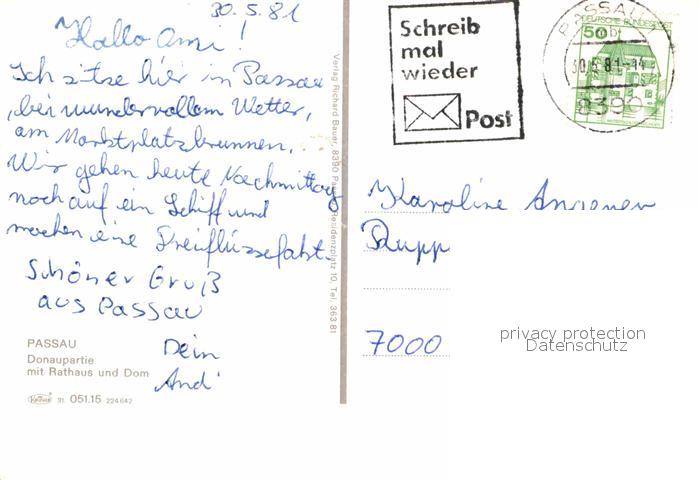 30.5.81
Hallo Omi!
Ich sitze hier in Passau
, bei wundervollem Wetter,
am Marktplatzbrunnen.
Wir gehen heute Nachmittag
noch auf ein Schiff und
machen eine Dreiflüssefahrt.
Schöner Gruß
aus Passau
Dein
Andi
PASSAU
Donaupartie
mit Rathaus und Dom
31. 051.15 224642
Verlag Richard Bauer, 8390 Residenzplatz 10, Tel. 36381
Schreib
mal
wieder
Post
PASSAU
30.5.81-14
8390
DEUTSCHE BUNDESPOST
50
Karoline
Rupp
7000
privacy protection
Datenschutz